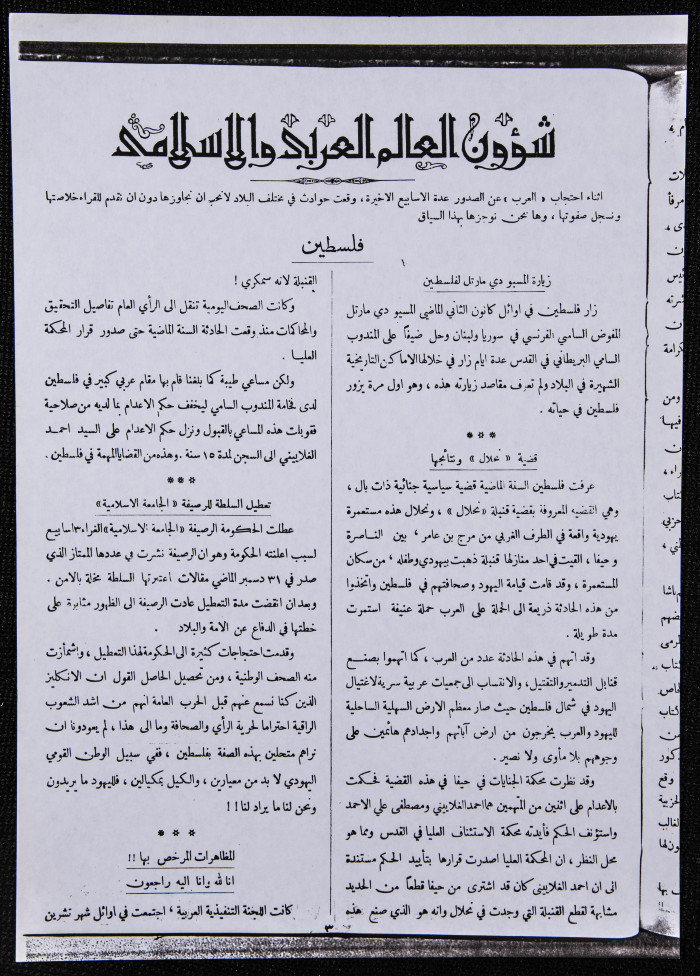 شؤون العالم العربي والاسلامي
اثناء احتجاب «العرب» عن الصدور عدة الاسابيع الاخيرة، وقعت حوادث في مختلف البلاد لا نحب ان نتجاوزها دون ان نقدم للقراء خلاصتها
ونسجل صفوتها، وها نحن نوجزها بهذا السياق
فلسطين
١
زيارة المسيو دي مارتل لفلسطين
زار فلسطين في اوائل كانون الثاني الماضي المسيو دي مارتل
المفوض السامي الفرنسي في سوريا ولبنان وحل ضيفاً على المندوب
السامي البريطاني في القدس عدة ايام زار في خلالها الاماكن التاريخية
الشهيرة في البلاد ولم تعرف مقاصد زيارته هذه، وهو اول مرة يزور
فلسطين في حياته.
***
قضية «نحلال» ونتائجها
عرفت فلسطين السنة الماضية قضية سياسية جنائية ذات بال،
وهي القضية المعروفة بقضية قنبلة «نحلال»، ونحلال هذه مستعمرة
يهودية واقعة في الطرف الغربي من مرج بن عامر، بين الناصرة
وحيفا، القيت في احد منازلها قنبلة ذهبت بيهودي وطفله، من سكان
المستعمرة، وقد قامت قيامة اليهود وصحافتهم في فلسطين واتخذوا
من هذه الحادثة ذريعة الى الحملة على العرب حملة عنيفة استمرت
مدة طويلة.
وقد اتهم في هذه الحادثة عدد من العرب، كما اتهموا بصنع
قنابل التدمير والتقتيل، والانتساب الى جمعيات عربية سرية لاغتيال
اليهود في شمال فلسطين حيث صار معظم الارض السهلية الساحلية
لليهود والعرب يخرجون من ارض آبائهم واجدادهم هائمين على
وجوههم بلا مأوى ولا نصير.
وقد نظرت محكمة الجنايات في حيفا في هذه القضية فحكمت
بالاعدام على اثنين من المتهمين هما احمد الغلاييني ومصطفى علي الاحمد
واستؤنف الحكم فأيدته محكمة الاستئناف العليا في القدس ومما هو
محل النظر، ان المحكمة العليا اصدرت قرارها بتأييد الحكم مستندة
الى ان احمد الغلاييني كان قد اشترى من حيفا قطعاً من الحديد
مشابهة لقطع القنبلة التي وجدت في نحلال وانه هو الذي صنع هذه
القنبلة لانه سمكري!
وكانت الصحف اليومية تنقل الى الرأي العام تفاصيل التحقيق
والمحاكمات منذ وقعت الحادثة السنة الماضية حتى صدور قرار المحكمة
العليا.
ولكن مساعي طيبة كما بلغنا قام بها مقام عربي كبير في فلسطين
لدى فخامة المندوب السامي ليخفف حكم الاعدام بما لديه من صلاحية
فقوبلت هذه المساعي بالقبول ونزل حكم الاعدام على السيد احمد
الغلاييني الى السجن لمدة ١٥ سنة. وهذه من القضايا المهمة في فلسطين.
***
تعطيل السلطة للرصيفة «الجامعة الاسلامية»
عطلت الحكومة الرصيفة «الجامعة الاسلامية» الغراء ٣ اسابيع
لسبب اعلنته الحكومة وهو ان الرصيفة نشرت في عددها الممتاز الذي
صدر في ٣١ دسمبر الماضي مقالات اعتبرتها السلطة مخلة بالامن.
وبعد ان انقضت مدة التعطيل عادت الرصيفة الى الظهور مثابرة على
خطتها في الدفاع عن الامة والبلاد.
وقدمت احتجاجات كثيرة الى الحكومة لهذا التعطيل، واشمأزت
منه الصحف الوطنية، ومن تحصيل الحاصل القول ان الانكليز
الذين كنا نسمع عنهم قبل الحرب العامة انهم من اشد الشعوب
الراقية احتراما لحرية الرأي والصحافة وما الى هذا، لم يعودونا ان
نراهم متحلين بهذه الصفة بفلسطين، ففي سبيل الوطن القومي
اليهودي لا بد من معيارين، والكيل بمكيالين، فلليهود ما يريدون
ونحن لنا ما يراد لنا!!
***
المظاهرات المرخص بها!!
انا لله وانا اليه راجعون
كانت اللجنة التنفيذية العربية، اجتمعت في اوائل شهر تشرين
٣